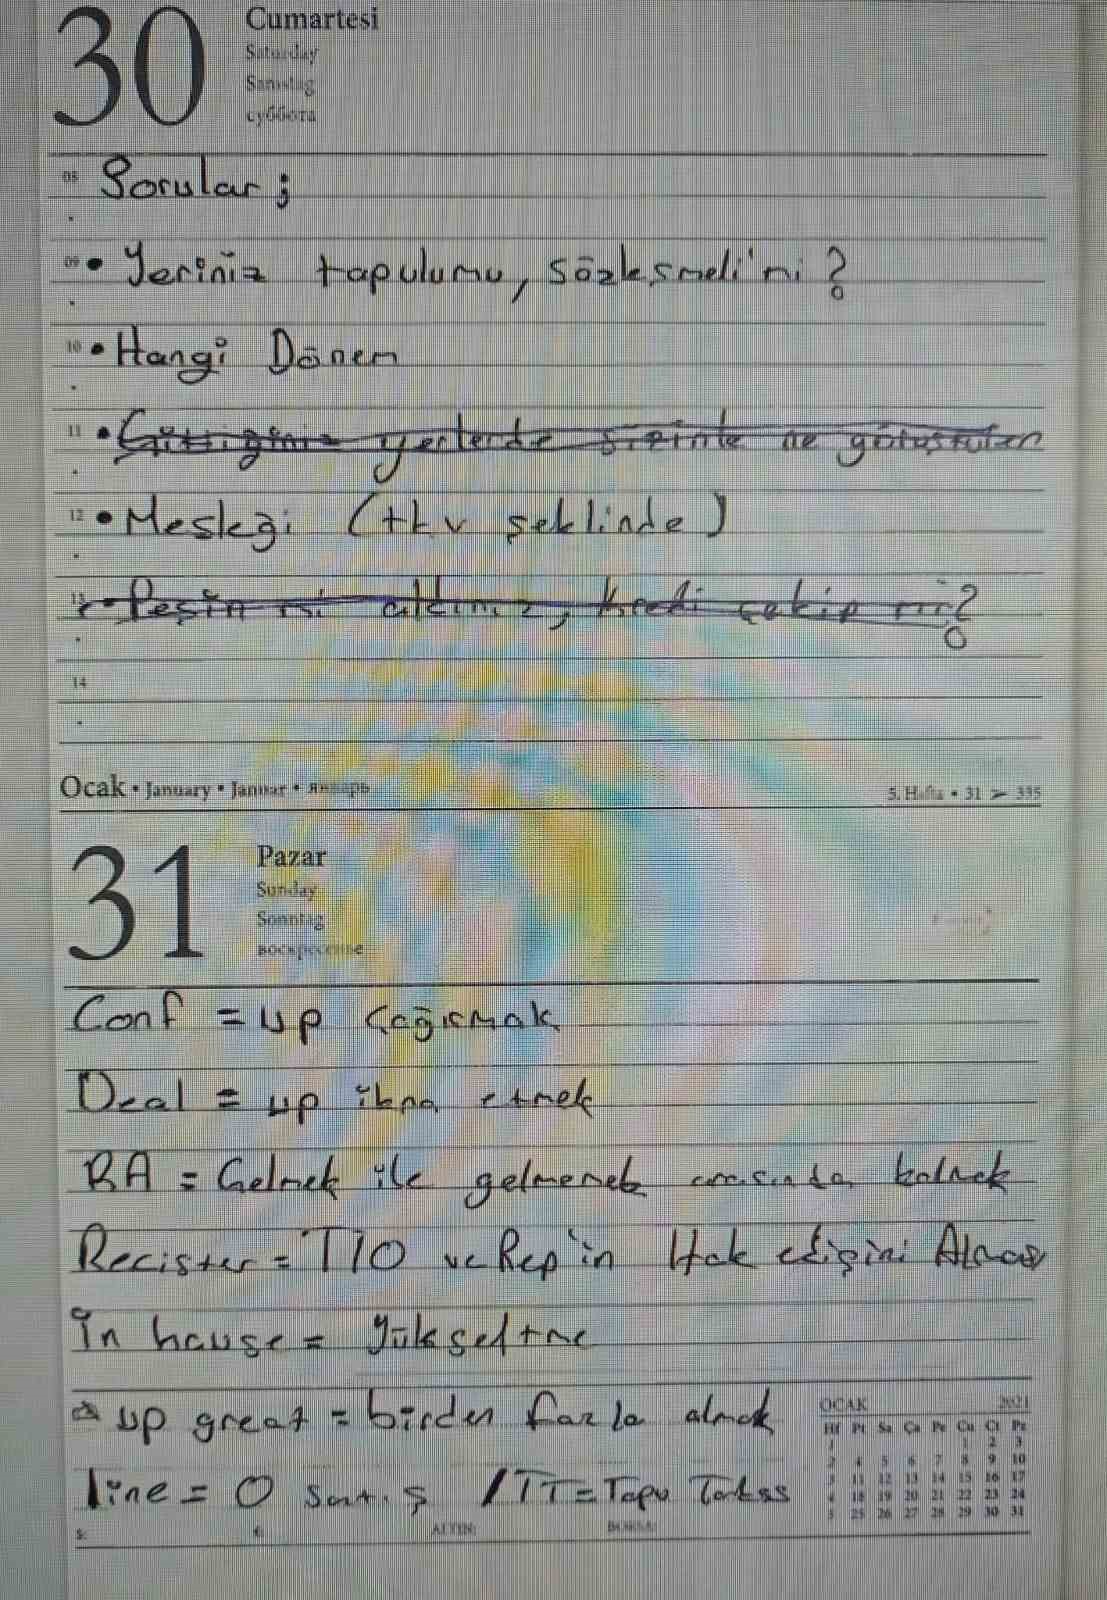 30 Cumartesi
Saturday
Samstag
суббота
08 Sorular ;
09 • Yeriniz tapulumu, sözleşmeli'mi ?
10 • Hangi Dönem
11 • Gittiğiniz yerlerde sizinle ne görüştüler
12 • Mesleği (tkv şeklinde)
13 • Peşin mi aldınız, kredi çekip mi ?
14
Ocak • January • Januar • январь 5. Hafta • 31 ➢ 335
31 Pazar
Sunday
Sonntag
воскресенье
Conf = up çağırmak
Deal = up ikna etmek
BA = Gelmek ile gelmemek arasında kalmak
Recister = TİO ve Rep'in Hak edişini
İn hause = Yükseltme
up great = birden fazla almak
line = 0 satış / TT = Tapu Takas
OCAK 2021
Hf Pt Sa Ça Pe Cu Ct Pz
1 1 2 3
2 4 5 6 7 8 9 10
3 11 12 13 14 15 16 17
4 18 19 20 21 22 23 24
5 25 26 27 28 29 30 31
$: €: ALTIN: BORSA: